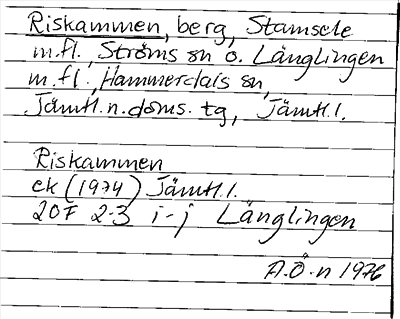 Riskammen, berg, Stamsele
m.fl., Ströms sn o. Länglingen
m.fl., Hammerdals sn,
Jämtl.n.doms.tg, Jämtl.l.
Riskammen
ek (1974) Jämtl.l.
20F 2-3 i-j Länglingen
A.Ö.n 1976